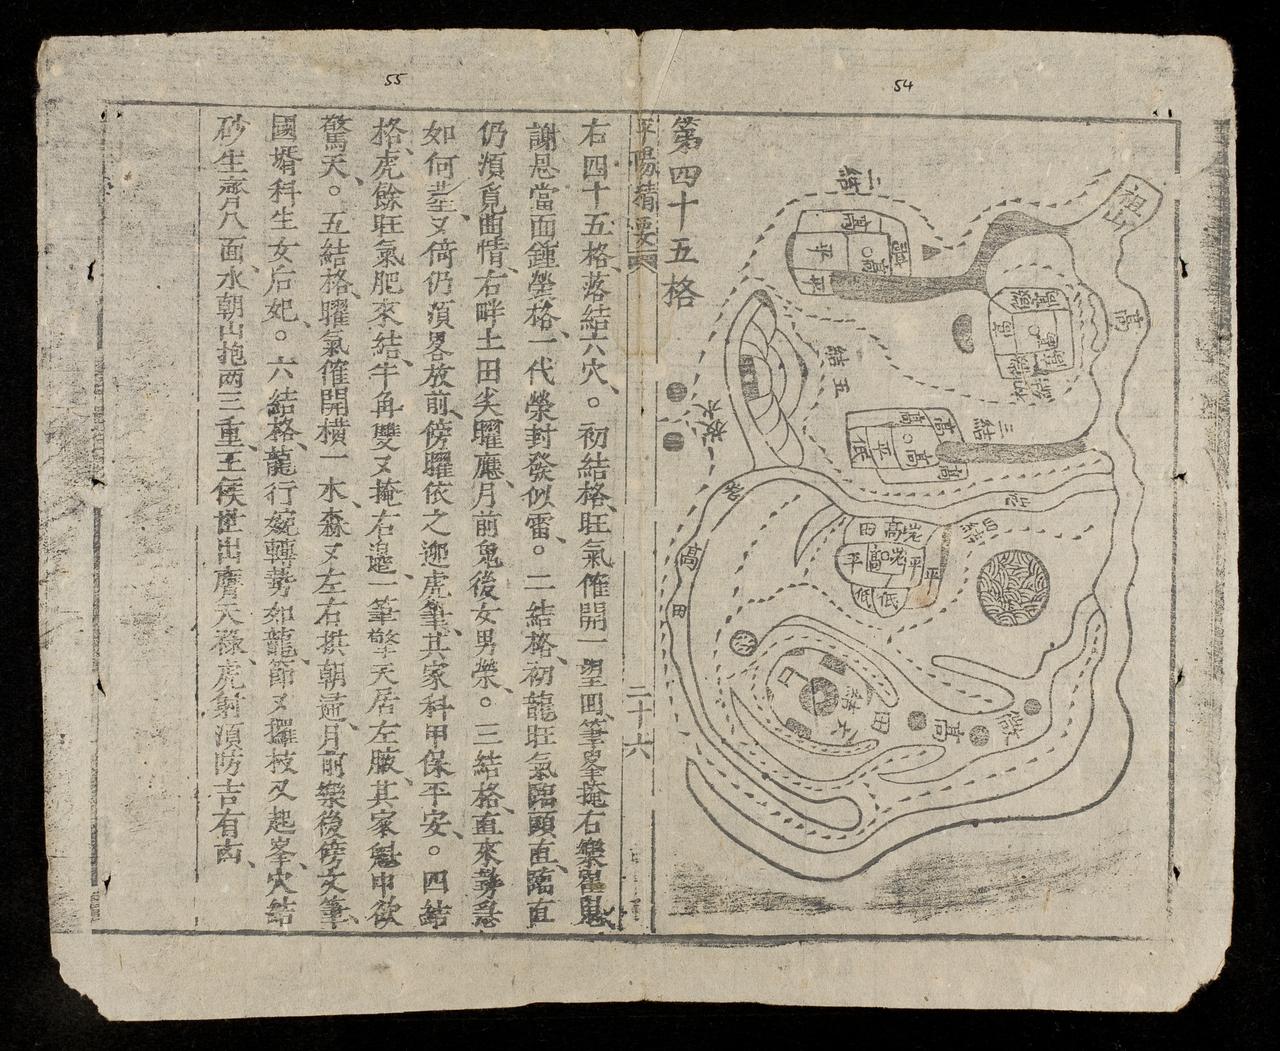 54
55
第四十五格
祖山
高
二結
高
平
平
高
三結
五結
高
平
低
放水
高
田
田高
平
平
低
低
田
高
六結
平陽精要
二十六
右四十五格落結六穴。初結格旺氣催開一望四筆峯掩右樂
謝恩當面鍾榮格一代榮封發似雷。二結格初龍旺氣臨頭直臨直
仍須覓曲情右畔土田尖曜應月前鬼後女男榮。三結格直來勢急
如何塟又倚仍須畧放前傍曜依之迎虎筆其家科甲保平安。四結
格虎餘旺氣肥來結牛角雙叉掩右邉一筆擎天居左腋其家魁申欲
驚天。五結格曜氣催開橫一水森又左右拱朝逼月前樂後傍文筆
國壻科生女后妃。六結格龍行婉轉勢如龍節又擺枝又起峯穴結
砂生齊八面水朝山抱兩三重王侯世出膺天祿虎射須防吉有凶